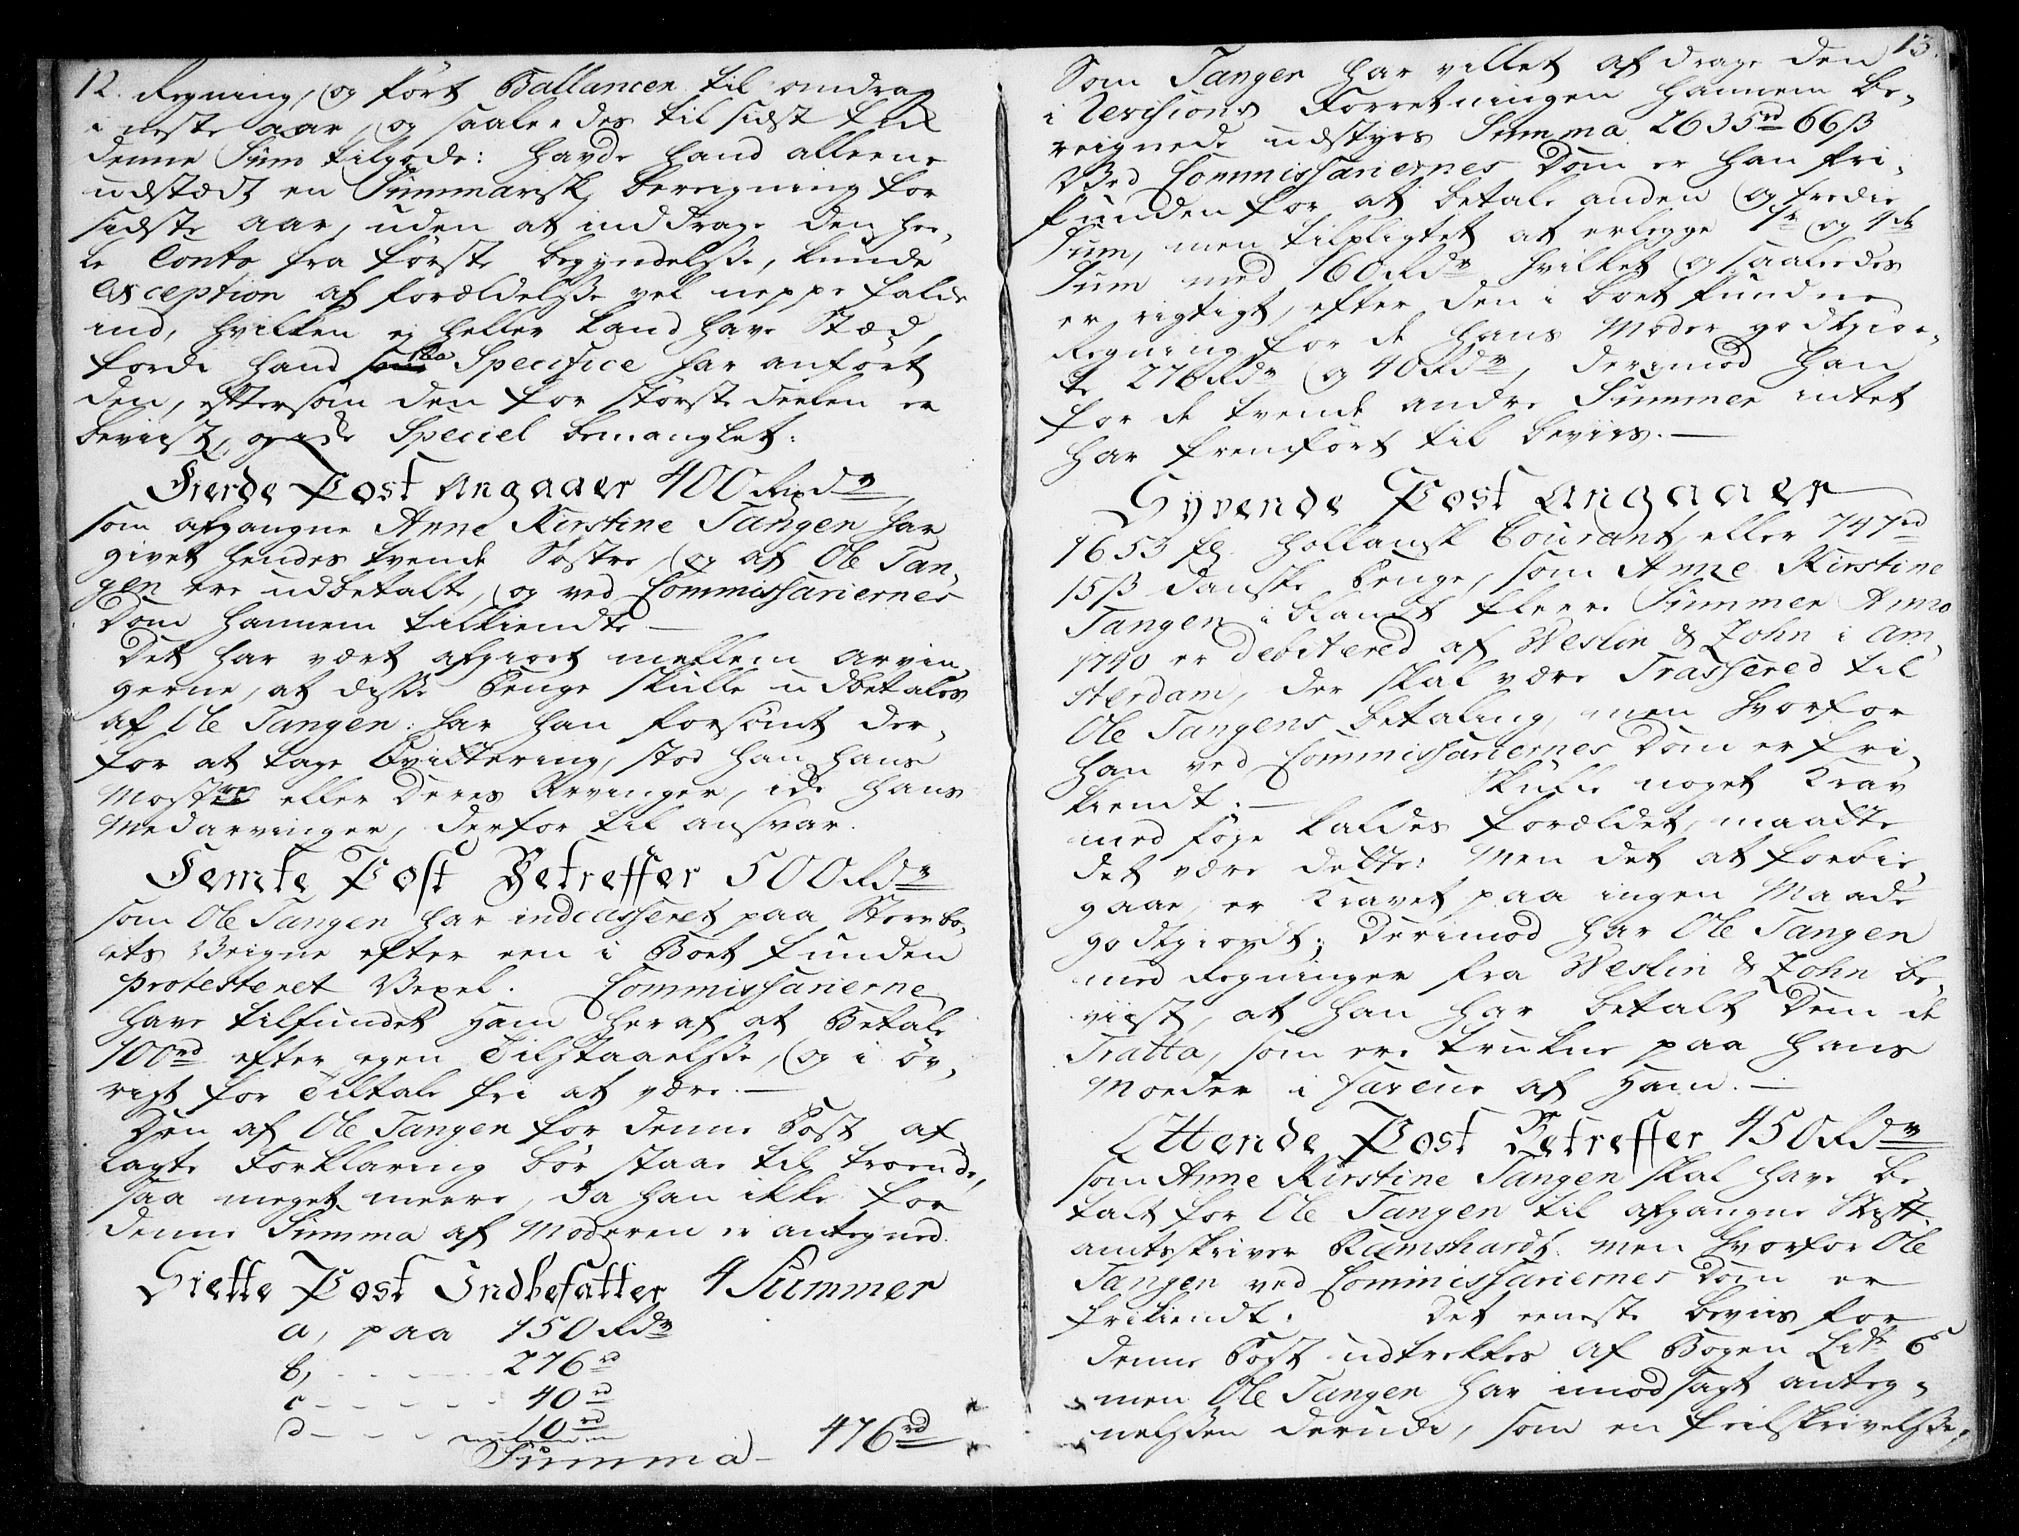 12.
Regning, og fört Ballancen til omdrag
i neste aar, og saaledes til sidst
denne Sum tilgode: havde hand alleene
udstædt en Summarisk bereigning for
sidste aar, uden at inddrage den hee,
le Conto fra förste begyndelsse, kunde
Exception af forældelsse vel neppe falde
ind, hvilken ej heller kand have Stæd,
fordi hand saa Specifice har anfört
den, eftersom den for störste deelen er
beviist, Speciel bemanglet:
Fierde Post Angaaer 400 Rixdr
som afgangne Anne Kirstine Tangen har
givet hendes tvende Söstre, og af Ole Tan,
gen ere udbetalte, og ved Commissariernes
Dom hannem tilkiendte —
Det har vært afgiort mellem Arvin,
gerne, at disse Penge skulle udbetales
af Ole Tangen: har han forsömt der,
for at tage Qvittering, stod han hans
eller Deres Arvinger, ide hans
Medarvinger, derfor til ansvar.
Femte Post Betreffer 500 Rdr
som Ole Tangen har indcasseret paa Sterbo,
ets Veigne efter een i Boet funden
protesteret Vexel. Commissarierne
have tilfundet ham heraf at Betale
100rd efter egen Tilstaaelsse, og i öv,
rigt for Tiltale fri at være. —
Den af Ole Tangen for denne Post af,
lagte Forklaring bör staae til troende,
saa meget meere, da han ikke for
denne Summa af Moderen er antegned.
Siette Post Indbefatter 4 Summer
a, paa 150 Rdr
b, - - - - - 276rd
c - - - - - 40rd
d - - - - 10rd
Summa - 476rd
13.
Som Tangen har villet afdrage den
i Revisions Forretningen hannem be,
reignede udstyrs Summa 2635rd 66ß
Ved Commissariernes Dom er han fri,
funden for at betale anden og tredie
Sum, men tilpligtet at erlegge 1te og 4de
Sum med 160 Rdr hvilket og saaledes
er rigtigt, efter den i boet fundne
Regning for de hans Moder godtgior,
te 276 Rdr og 40 Rdr, derimod han
for de tvende andre Summer intet
har fremfört til beviis. —
Syvende Post Angaaer
1653 fl. hollansk Courant, eller 747rd
15ß Danske Penge, som Anne Kirstine
Tangen iblandt fleere Summer Anno
1740 er Debitered af Weslin & Zohn i Am,
sterdam, der skal være Trassered til
Ole Tangens betaling, men hvorfor
han ved Commissariernes Dom er fri,
kiendt. — Skulle noget Krav
med föye kaldes forældet, maatte
det være dette: Men det at forbie,
gaae, er Kravet paa ingen Maade
godtgiordt; Derimod har Ole Tangen
med Regninger fra Weslin & Zohn be,
viist, at han har betalt Dem de
Tratta, som ere trukne paa hans
Moeder i faveur af ham. —
Ottende Post Betreffer 450 Rdr
som Anne Kirstine Tangen skal have be,
talt for Ole Tangen til afgangne Stift,
amtsskriver Ramshardt: men hvorfor Ole
Tangen ved Commissariernes Dom er
frikiendt: Det eeneste beviis for
denne Post udtrekkes af Bogen Litr C
men Ole Tangen har imodsagt anteg,
nelssen derude, som en feilskrivelsse,